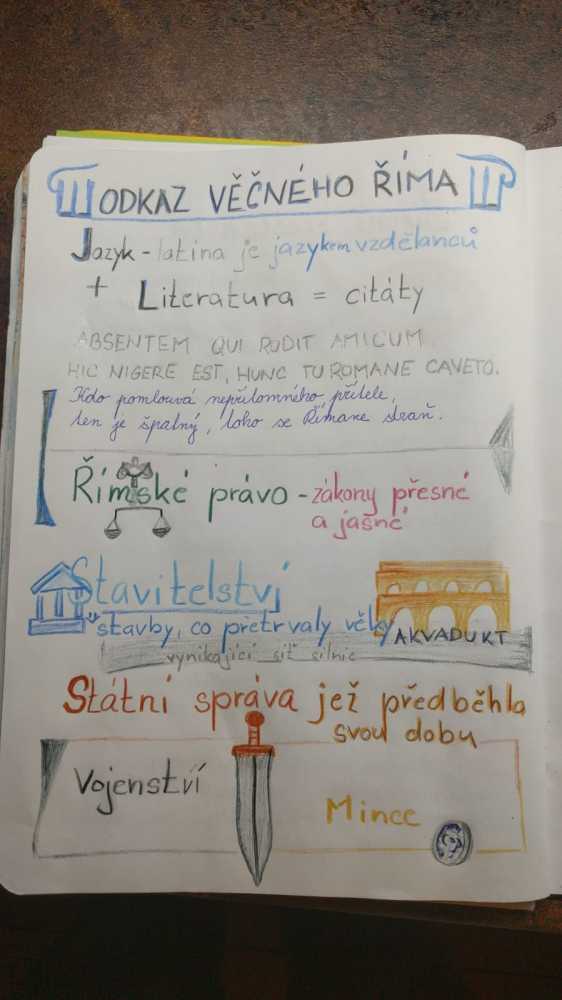 ODKAZ VĚČNÉHO ŘÍMA
Jazyk - latina je jazykem vzdělanců
+ Literatura = citáty
ABSENTEM QUI RODIT AMICUM
HIC NIGERE EST, HUNC TU ROMANE CAVETO.
Kdo pomlouvá nepřítomného přítele,
ten je špatný, toho se Římane straň.
Římské právo - zákony přesné
a jasné
Stavitelství
stavby, co přetrvaly věky
AKVADUKT
vynikající síť silnic
Státní správa jež předběhla
svou dobu
Vojenství
Mince